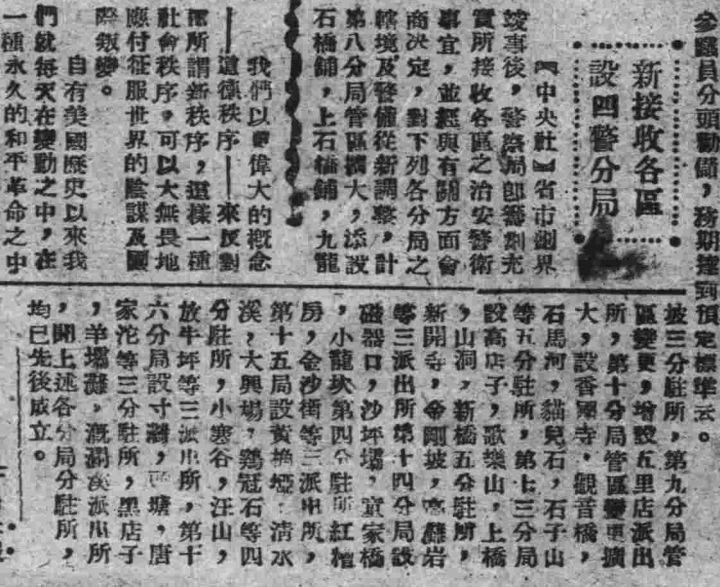 參議員分頭勸備，務期達到預定標準云。
新接收各區
設四警分局
【中央社】省市劃界
竣事後，警察局即籌劃充
實所接收各區之治安警衛
事宜，並經與有關方面會
商決定，對下列各分局之
轄境及警備從新調整，計
第八分局管區擴大，添設
石橋鋪，上石橋鋪，九龍
坡三分駐所，第九分局管
區變更，增設五里店派出
所，第十分局管區變更擴
大，設香國寺，觀音橋，
石馬河，貓兒石，石子山
等五分駐所，第十三分局
設高店子，歌樂山，上橋
，山洞，新橋五分駐所，
新開寺，金剛坡，高灘岩
等三派出所第十四分局設
磁器口，沙坪壩，童家橋
，小龍坎第四分駐所紅糟
房，金沙街等三派出所，
第十五局設黃桷埡，清水
溪，大興場，雞冠石等四
分駐所，小寒谷，汪山，
放牛坪等三派出所，第十
六分局設寸灘，塘，唐
家沱等三分駐所，黑店子
，羊壩灘，溉瀾溪派出所
，聞上述各分局分駐所，
均已先後成立。
我們以更偉大的概念
——道德秩序——來反對
那所謂新秩序，這樣一種
社會秩序，可以大無畏地
應付征服世界的陰謀及國
際叛變。
自有美國歷史以來我
們就每天在變動之中，在
一種永久的和平革命之中